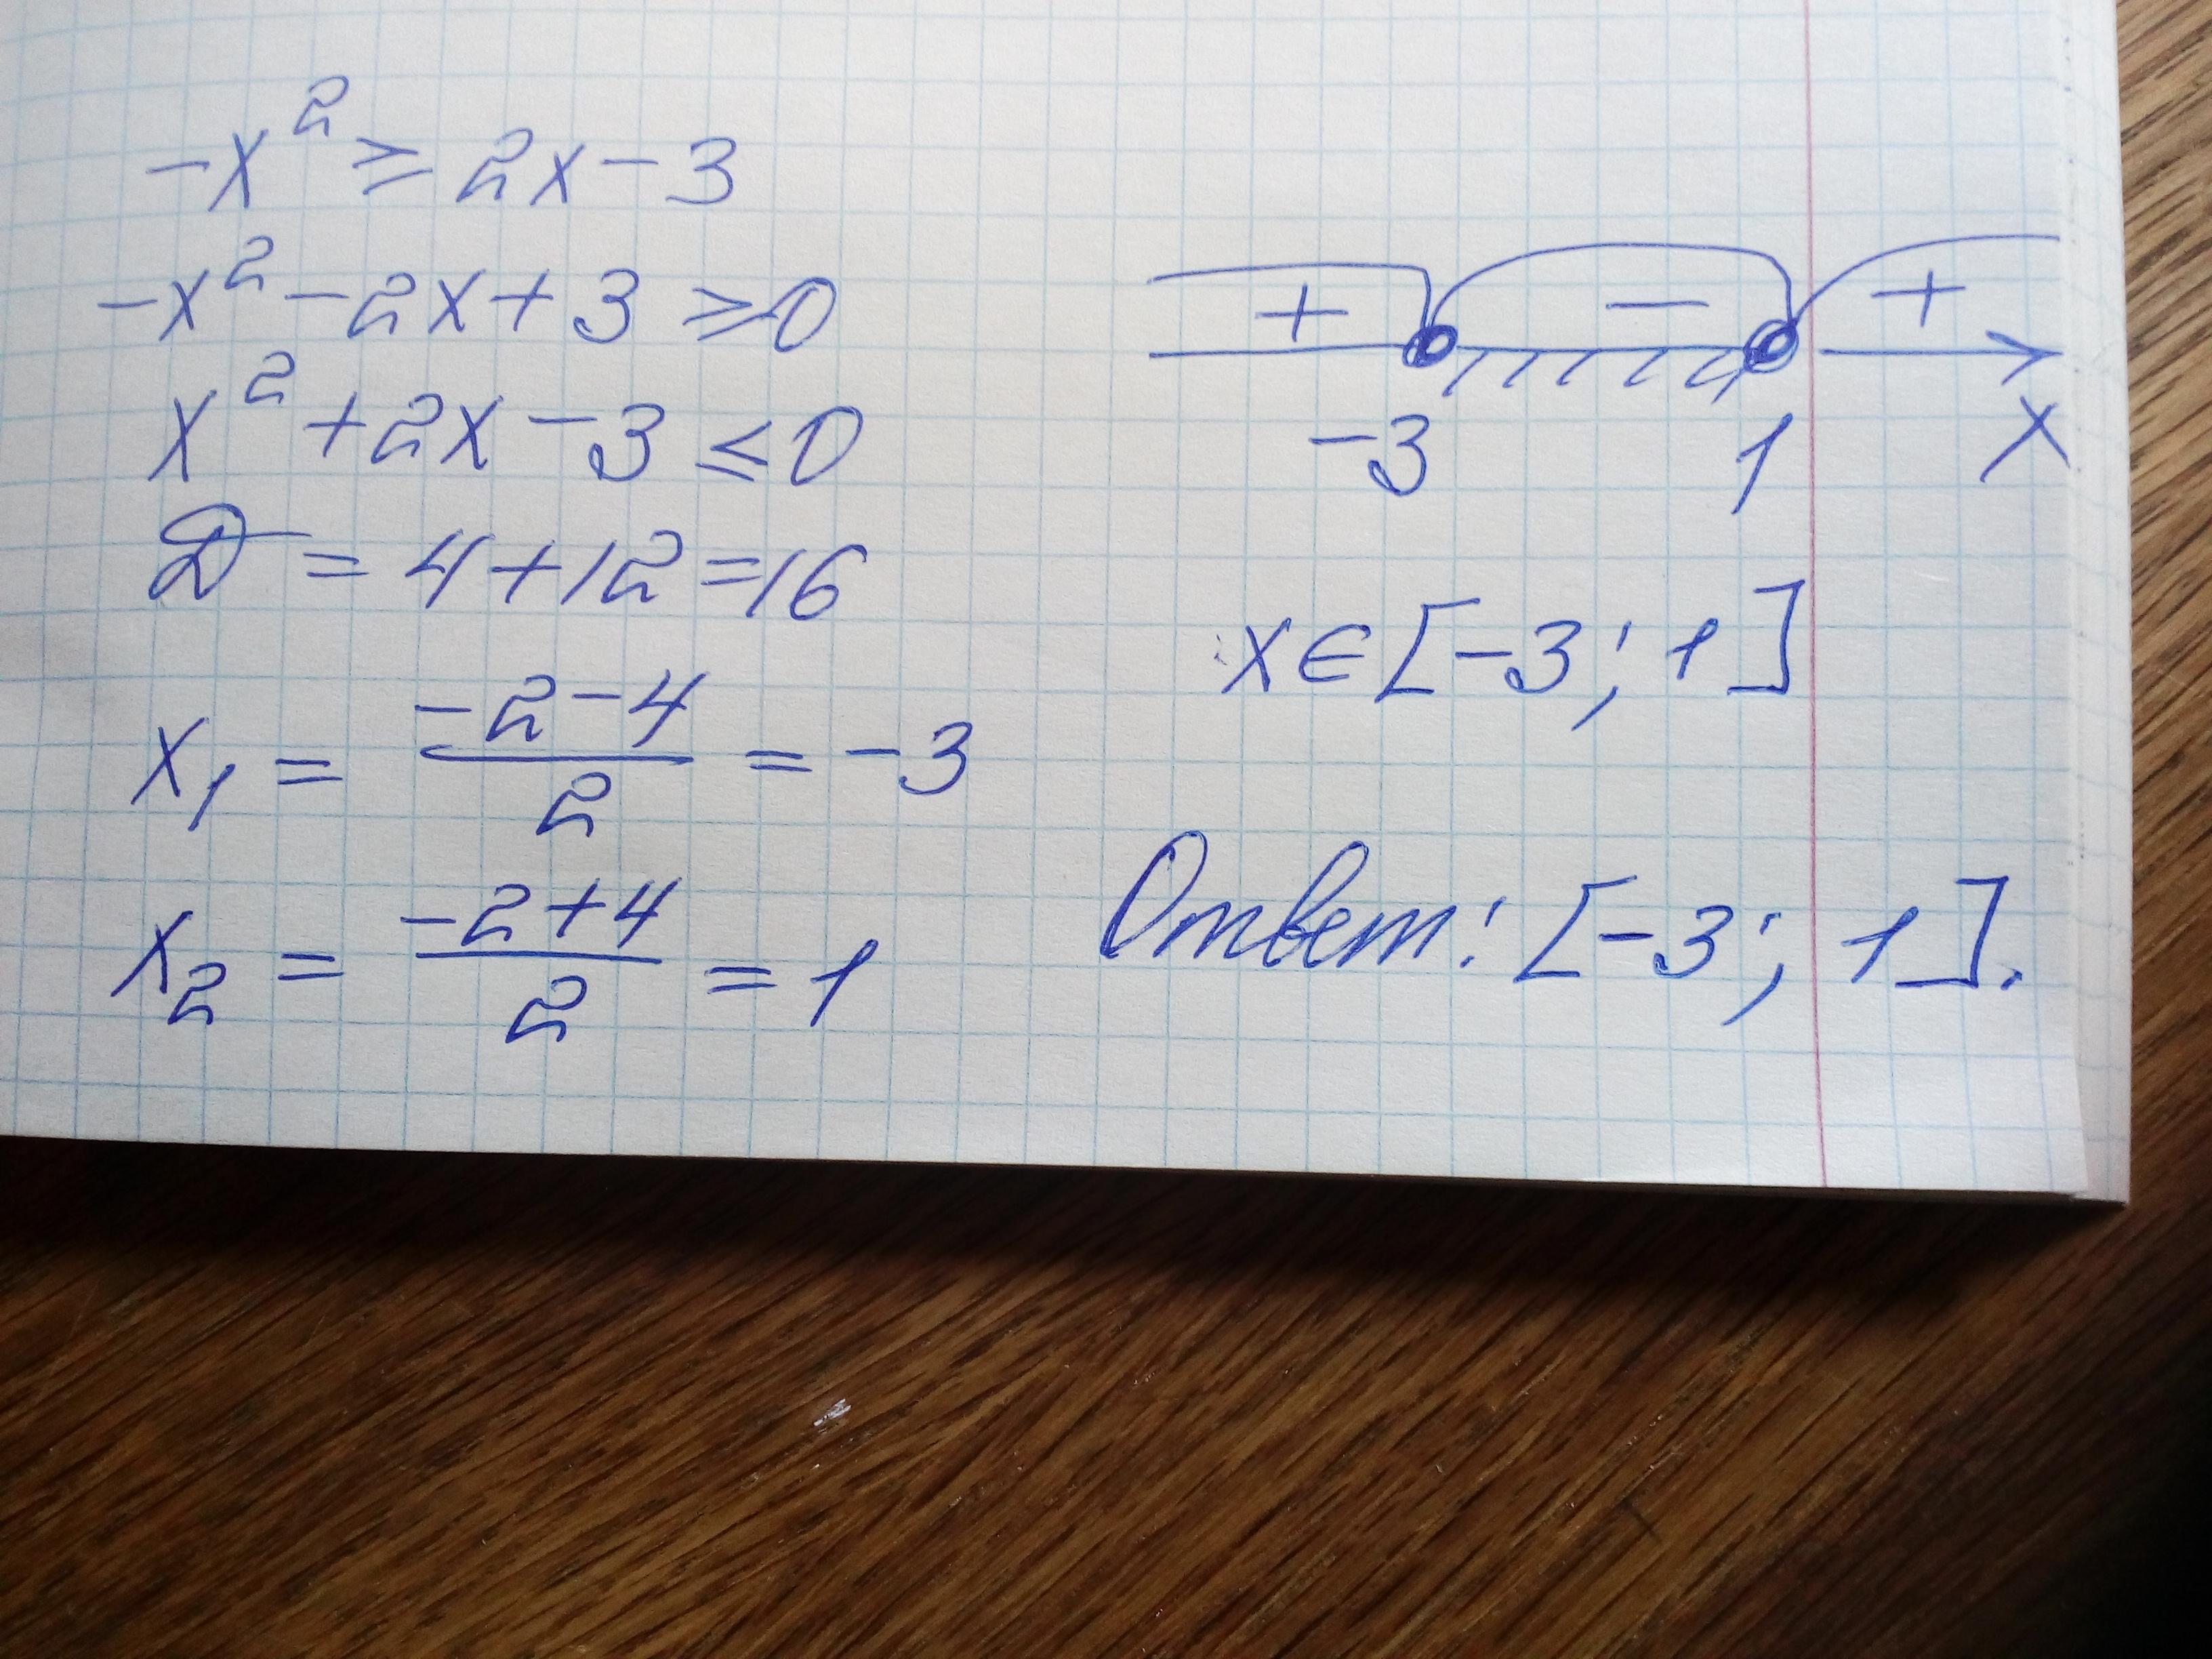 -x² ≥ 2x-3
-x²-2x+3 ≥ 0
x²+2x-3 ≤ 0
D = 4+12=16
x₁ = (-2-4)/2 = -3
x₂ = (-2+4)/2 = 1
+ - +
-3 1 x
x∈[-3; 1]
Ответ: [-3; 1].